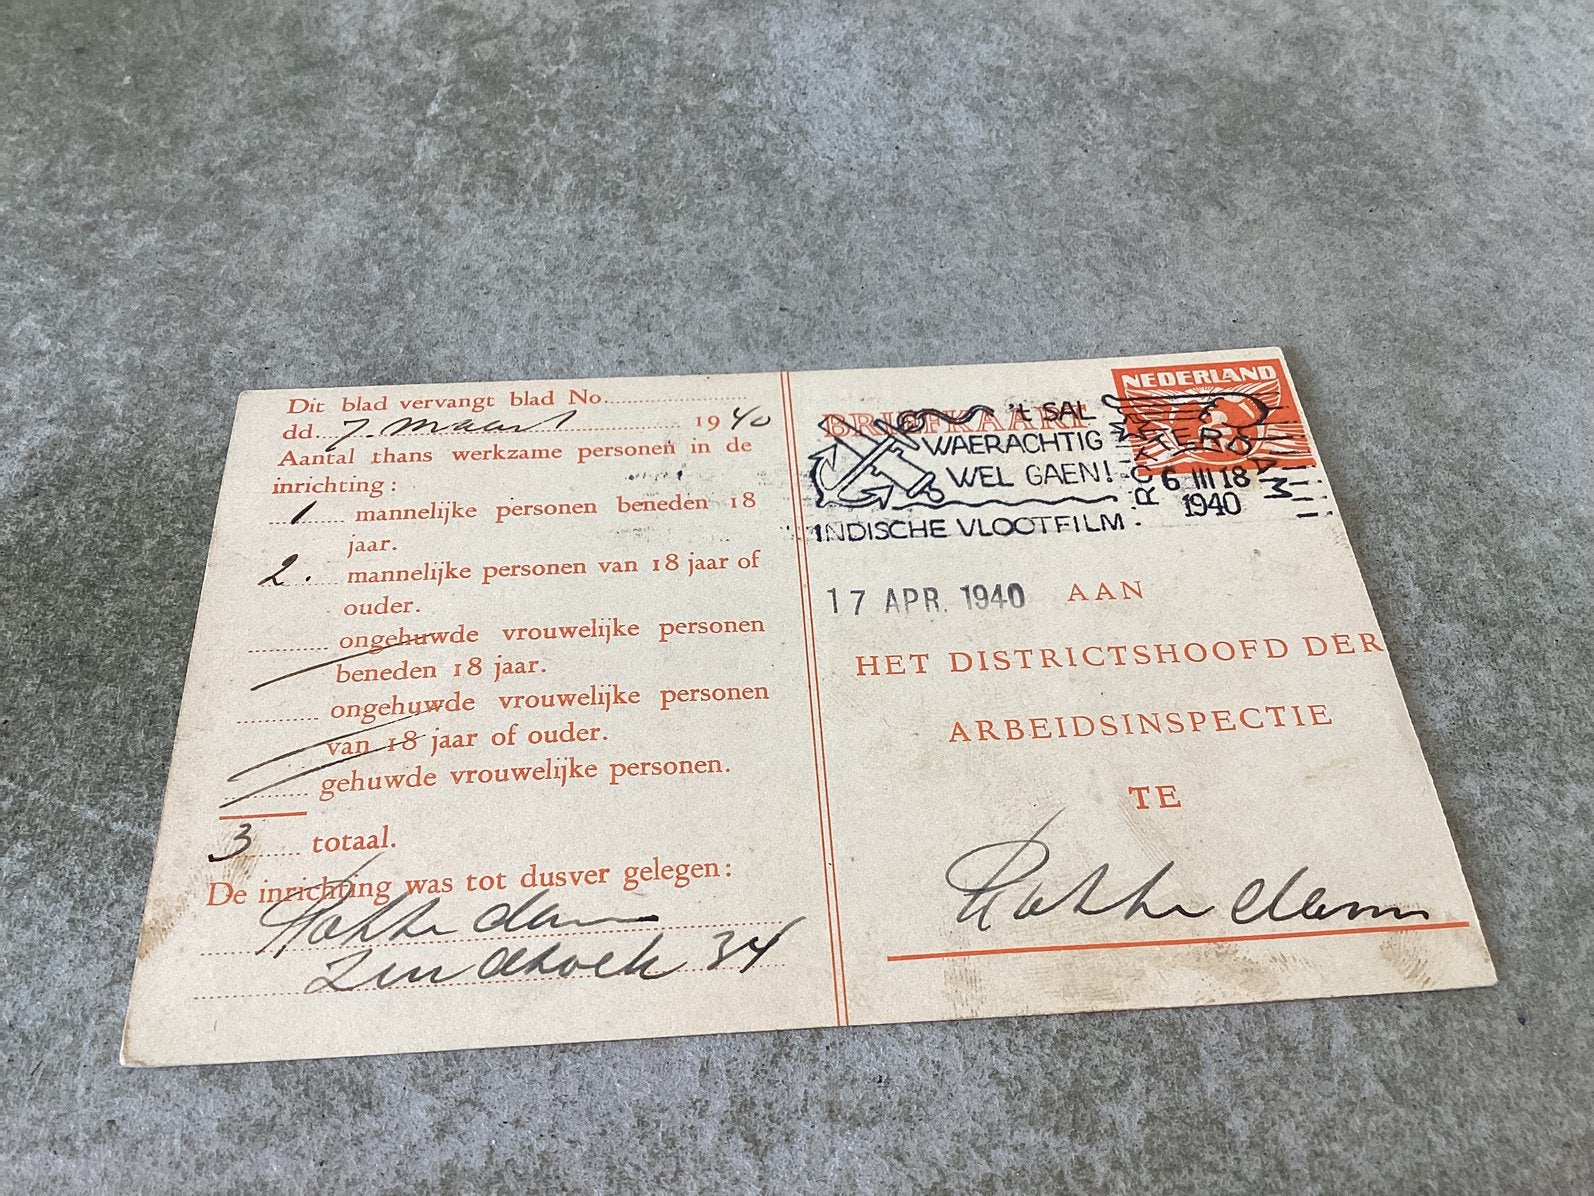 Dit blad vervangt blad No.
dd. 7. Maart 1940
Aantal thans werkzame personen in de
inrichting:
1 mannelijke personen beneden 18
jaar.
2. mannelijke personen van 18 jaar of
ouder.
ongehuwde vrouwelijke personen
beneden 18 jaar.
ongehuwde vrouwelijke personen
van 18 jaar of ouder.
gehuwde vrouwelijke personen.
3 totaal.
De inrichting was tot dusver gelegen:
34
NEDERLAND
BRIEFKAART
't SAL
WAERACHTIG
WEL GAEN!
INDISCHE VLOOTFILM.
ROTTERDAM
6 III 18
1940
17 APR. 1940
AAN
HET DISTRICTSHOOFD DER
ARBEIDSINSPECTIE
TE